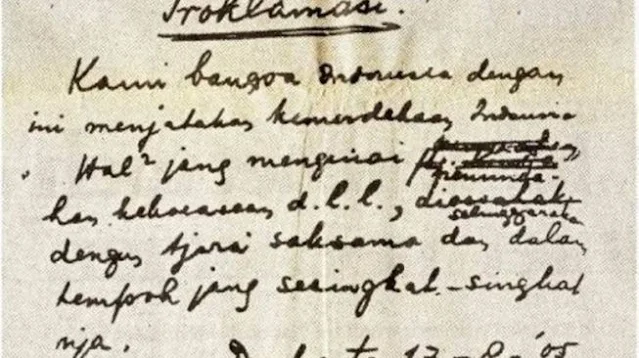 Proklamasi.
Kami bangsa Indonesia dengan
ini menjatakan kemerdekaan Indonesia
Hal² jang mengenai
pemindahan
kekoeasaan d.l.l.,
diselenggarakan
dengan tjara saksama dan dalam
tempoh jang sesingkat-singkat
nja.
Djakarta 17-8-'05